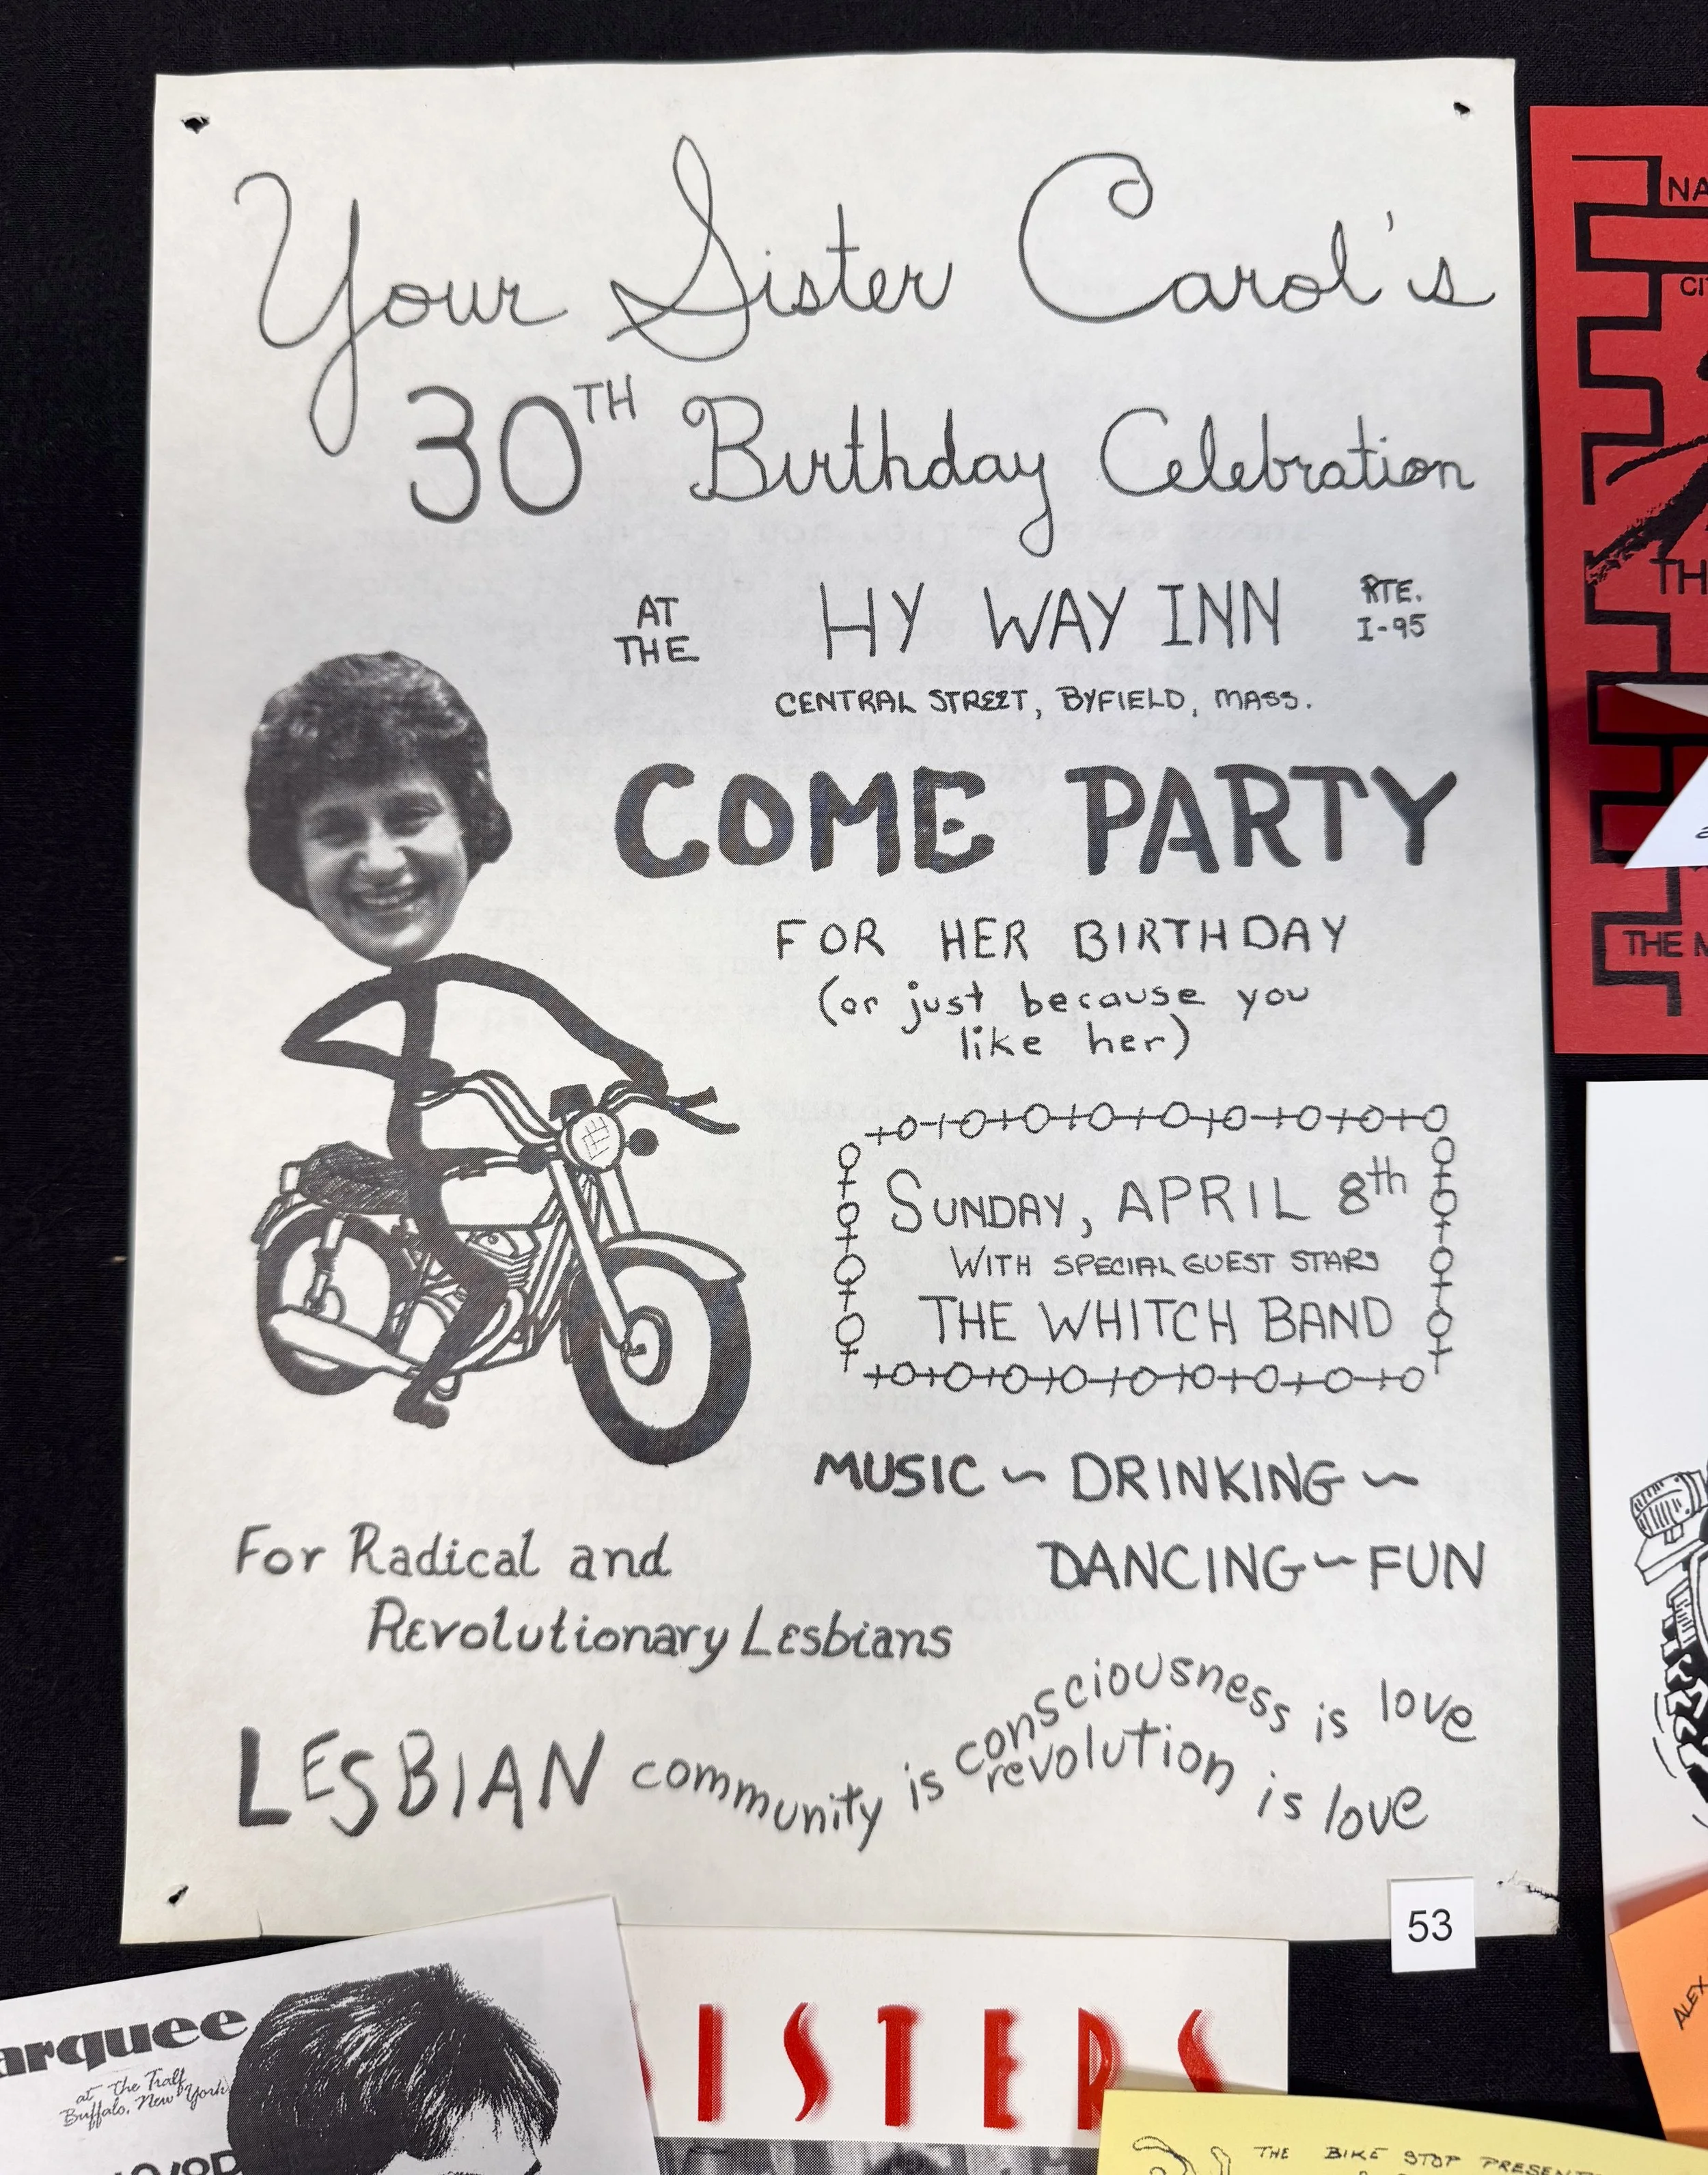 Your Sister Carol's
30TH Birthday Celebration
AT THE HY WAY INN RTE. I-95
CENTRAL STREET, BYFIELD, MASS.
COME PARTY
FOR HER BIRTHDAY
(or just because you
like her)
SUNDAY, APRIL 8th
WITH SPECIAL GUEST STARS
THE WHITCH BAND
MUSIC ~ DRINKING ~
DANCING ~ FUN
For Radical and
Revolutionary Lesbians
LESBIAN community is consciousness is love
revolution is love
53
arquee
at the Tralf
Buffalo, New York
ISTERS
THE BIKE STOP PRESENT
NA
CI
TH
THE M
ALEX